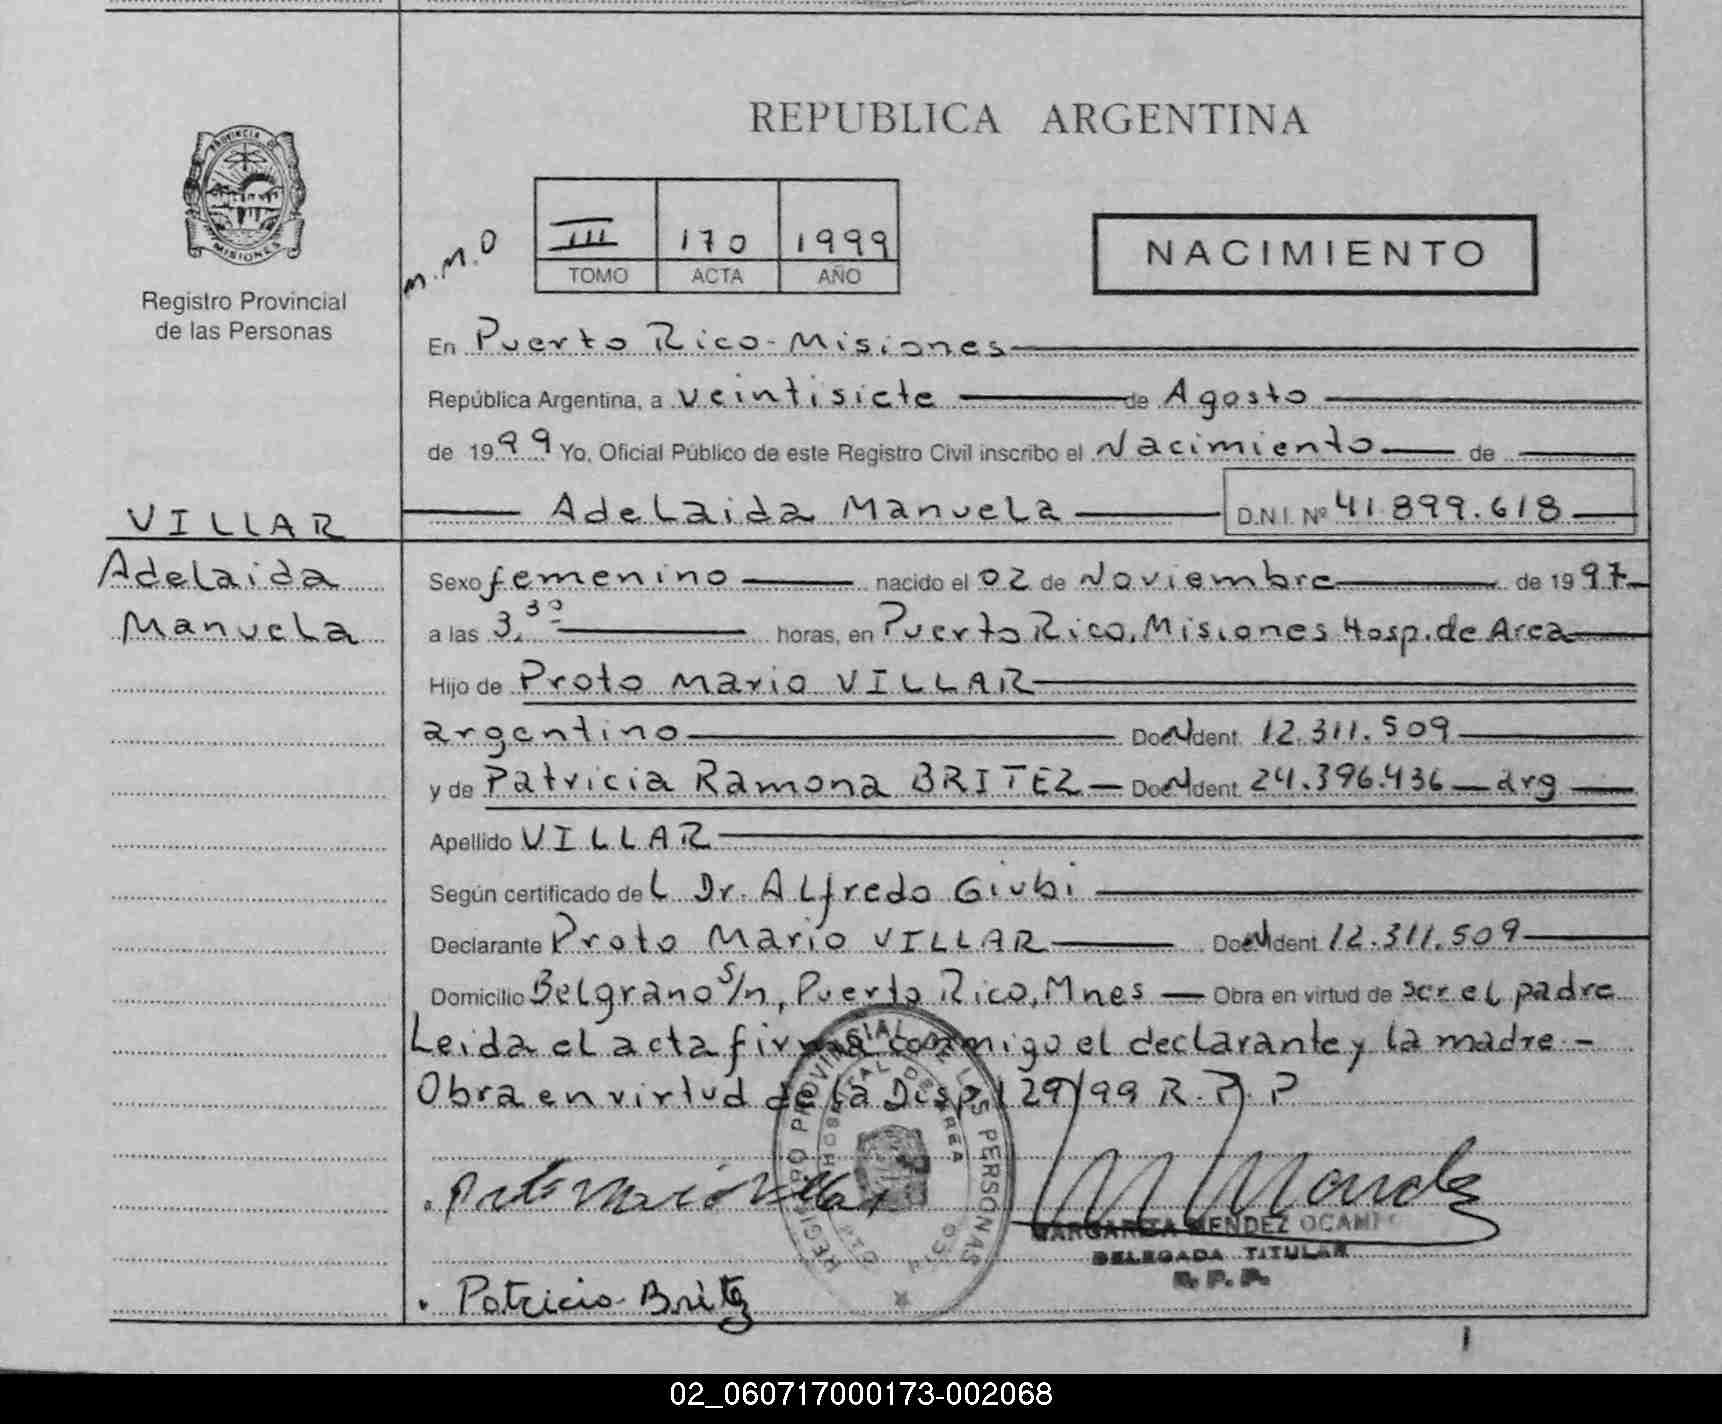 REPUBLICA ARGENTINA
PROVINCIA DE
MISIONES
Registro Provincial
de las Personas
M.M.O
III 170 1999
TOMO ACTA AÑO
NACIMIENTO
En Puerto Rico - Misiones
República Argentina, a veintisiete de Agosto
de 1999 Yo, Oficial Público de este Registro Civil inscribo el Nacimiento de
VILLAR
Adelaida Manuela D.N.I. Nº 41.899.618
Adelaida
Manuela
Sexo femenino nacido el 02 de Noviembre de 1997
a las 3,30 horas, en Puerto Rico, Misiones Hosp. de Area
Hijo de Proto Mario VILLAR
argentino Doc. Ident. 12.311.509
y de Patricia Ramona BRITEZ Doc. Ident. 24.396.436 arg
Apellido VILLAR
Según certificado del Dr. Alfredo Giubi
Declarante Proto Mario VILLAR Doc. Ident. 12.311.509
Domicilio Belgrano s/n, Puerto Rico, Mnes Obra en virtud de ser el padre
Leida el acta firma conmigo el declarante y la madre -
Obra en virtud de la Disp 129/99 R.P.P
REGISTRO PROVINCIAL DE LAS PERSONAS
HOSPITAL DE AREA
Proto Mario Villar
MARGARITA MENDEZ OCAMPO
DELEGADA TITULAR
R. P. P.
Patricia Britez
02_060717000173-002068